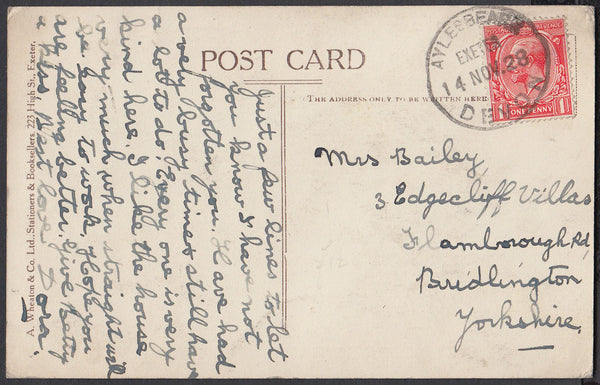 POST CARD
THE ADDRESS ONLY TO BE WRITTEN HERE
AYLESBEARE
EXETER
14 NOV. 28
DEVON
POSTAGE REVENUE
ONE PENNY
Mrs Bailey,
3. Edgecliff Villas
Flamborough Rd,
Bridlington
Yorkshire.
Just a few lines to let
you know I have not
forgotten you. Have had
a very busy time & still have
a lot to do. Every one is very
kind here. I like the house
very much when straight will
be easy to work. Hope you
are feeling better. Give Betty
a kiss. Best love Dora.
A. Wheaton & Co. Ltd., Stationers & Booksellers, 223 High St., Exeter.